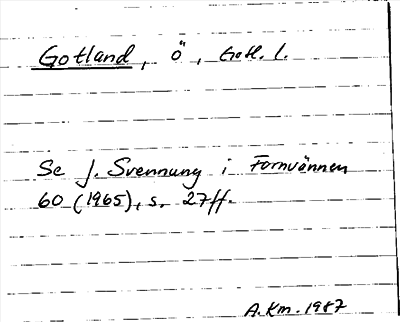 Gotland, ö, Gotl. l.
Se J. Svennung i Fornvännen
60 (1965), s. 27ff.
A.Km. 1987